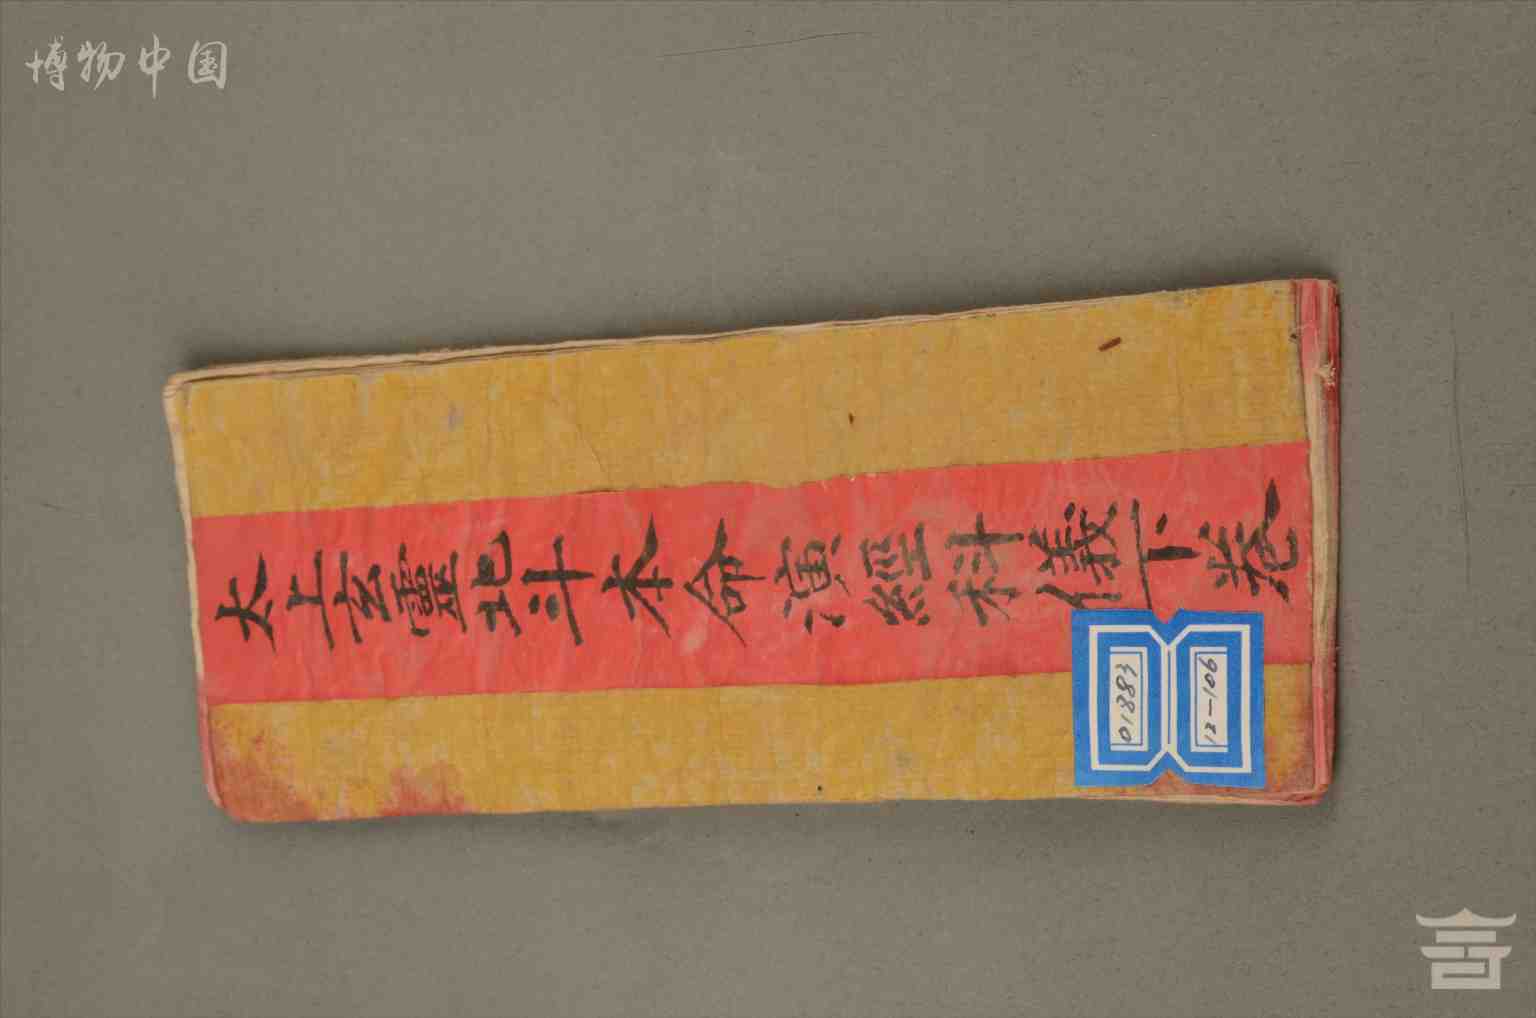 博物中国
太上玄靈北斗本命演經科儀下卷
01883
12-106